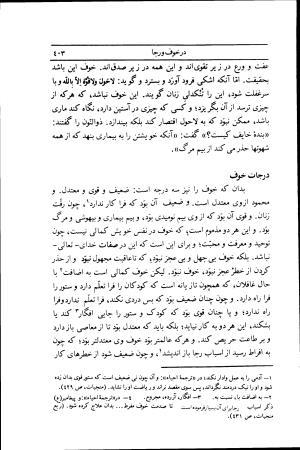 در خوف و رجا ۴۰۳
عفت و ورع در زیر تقوی‌اند و این همه در زیر صدق‌اند. خوف این باشد
بحقیقت. امّا آنکه اشکی فرود آورَد و بسترد و گوید: لاحول ولا قوّة إلّا بالله و با
سرغفلت شود، این را تُنُکدلی زنان گویند. این خوف نباشد، که هرکه از
چیزی ترسد از آن بگریزد؛ و کسی که چیزی در آستین دارد، نگاه کند ماری
باشد، ممکن نبوَد که به لاحول اقتصار کند بلکه بیندازد. ذوالنون را گفتند:
«بندهٔ خایف کیست؟» گفت: «آنکه خویشتن را به بیماری بنهد که از همه
شهوتها حذر می کند از بیم مرگ».
درجات خوف
بدان که خوف را نیز سه درجه است: ضعیف و قوی و معتدل. و
محمود از وی معتدل است. و ضعیف آن بوَد که فرا کار ندارد۱، چون رقّت
زنان. و قوی آن بوَد که از وی بیم نومیدی بوَد، و بیم بیماری و بیهوشی و مرگ
بوَد. و این هر دو مذموم است، که خوف در نفس خویش کمالی نیست، چون
توحید و معرفت و محبّت؛ و برای این است که این در صفات خدای-تعالی-
نباشد. بلکه خوف بی‌جهل و بی‌عجز نبوَد؛ که تا عاقبت مجهول نبوَد و از حذر
کردن از خطرْ عجز نبوَد، خوف نبوَد. لیکن خوف کمالی است به اضافت۲ با
حال غافلان، که همچون تازیانه است که کودکان را فرا تعلّم دارد و ستور را
فرا راه دارد. و چون چنان ضعیف بوَد که بس دردی نکند، فرا تعلّم ندارد و فرا
راه ندارد؛ و یا چنان قوی بوَد که کودک و ستور را جایی افگار۳ کند یا
بشکند، این هر دو به کار نیاید؛ بلکه باید که معتدل بوَد تا از معاصی باز دارد
و بر طاعت حریص کند. و هرکه عالمتر بوَد خوف وی معتدلتر بوَد؛ که چون
به افراط رسید از اسباب رجا باز اندیشد۱، و چون ضعیف شود از خطرهای کار
۱- آدمی را به عمل وادار نکند؛ در «ترجمهٔ احیاء»: و آن چون نی ضعیف است که ستور قوی بدان زده
شود و او را نیک دردمند نگرداند، پس سوی مقصد نراند و ریاضت او را نشاید. (منجیات، ص ۴۲۹).
۲- به اضافت با، نسبت به. ۳- افگار، آزرده، مجروح.